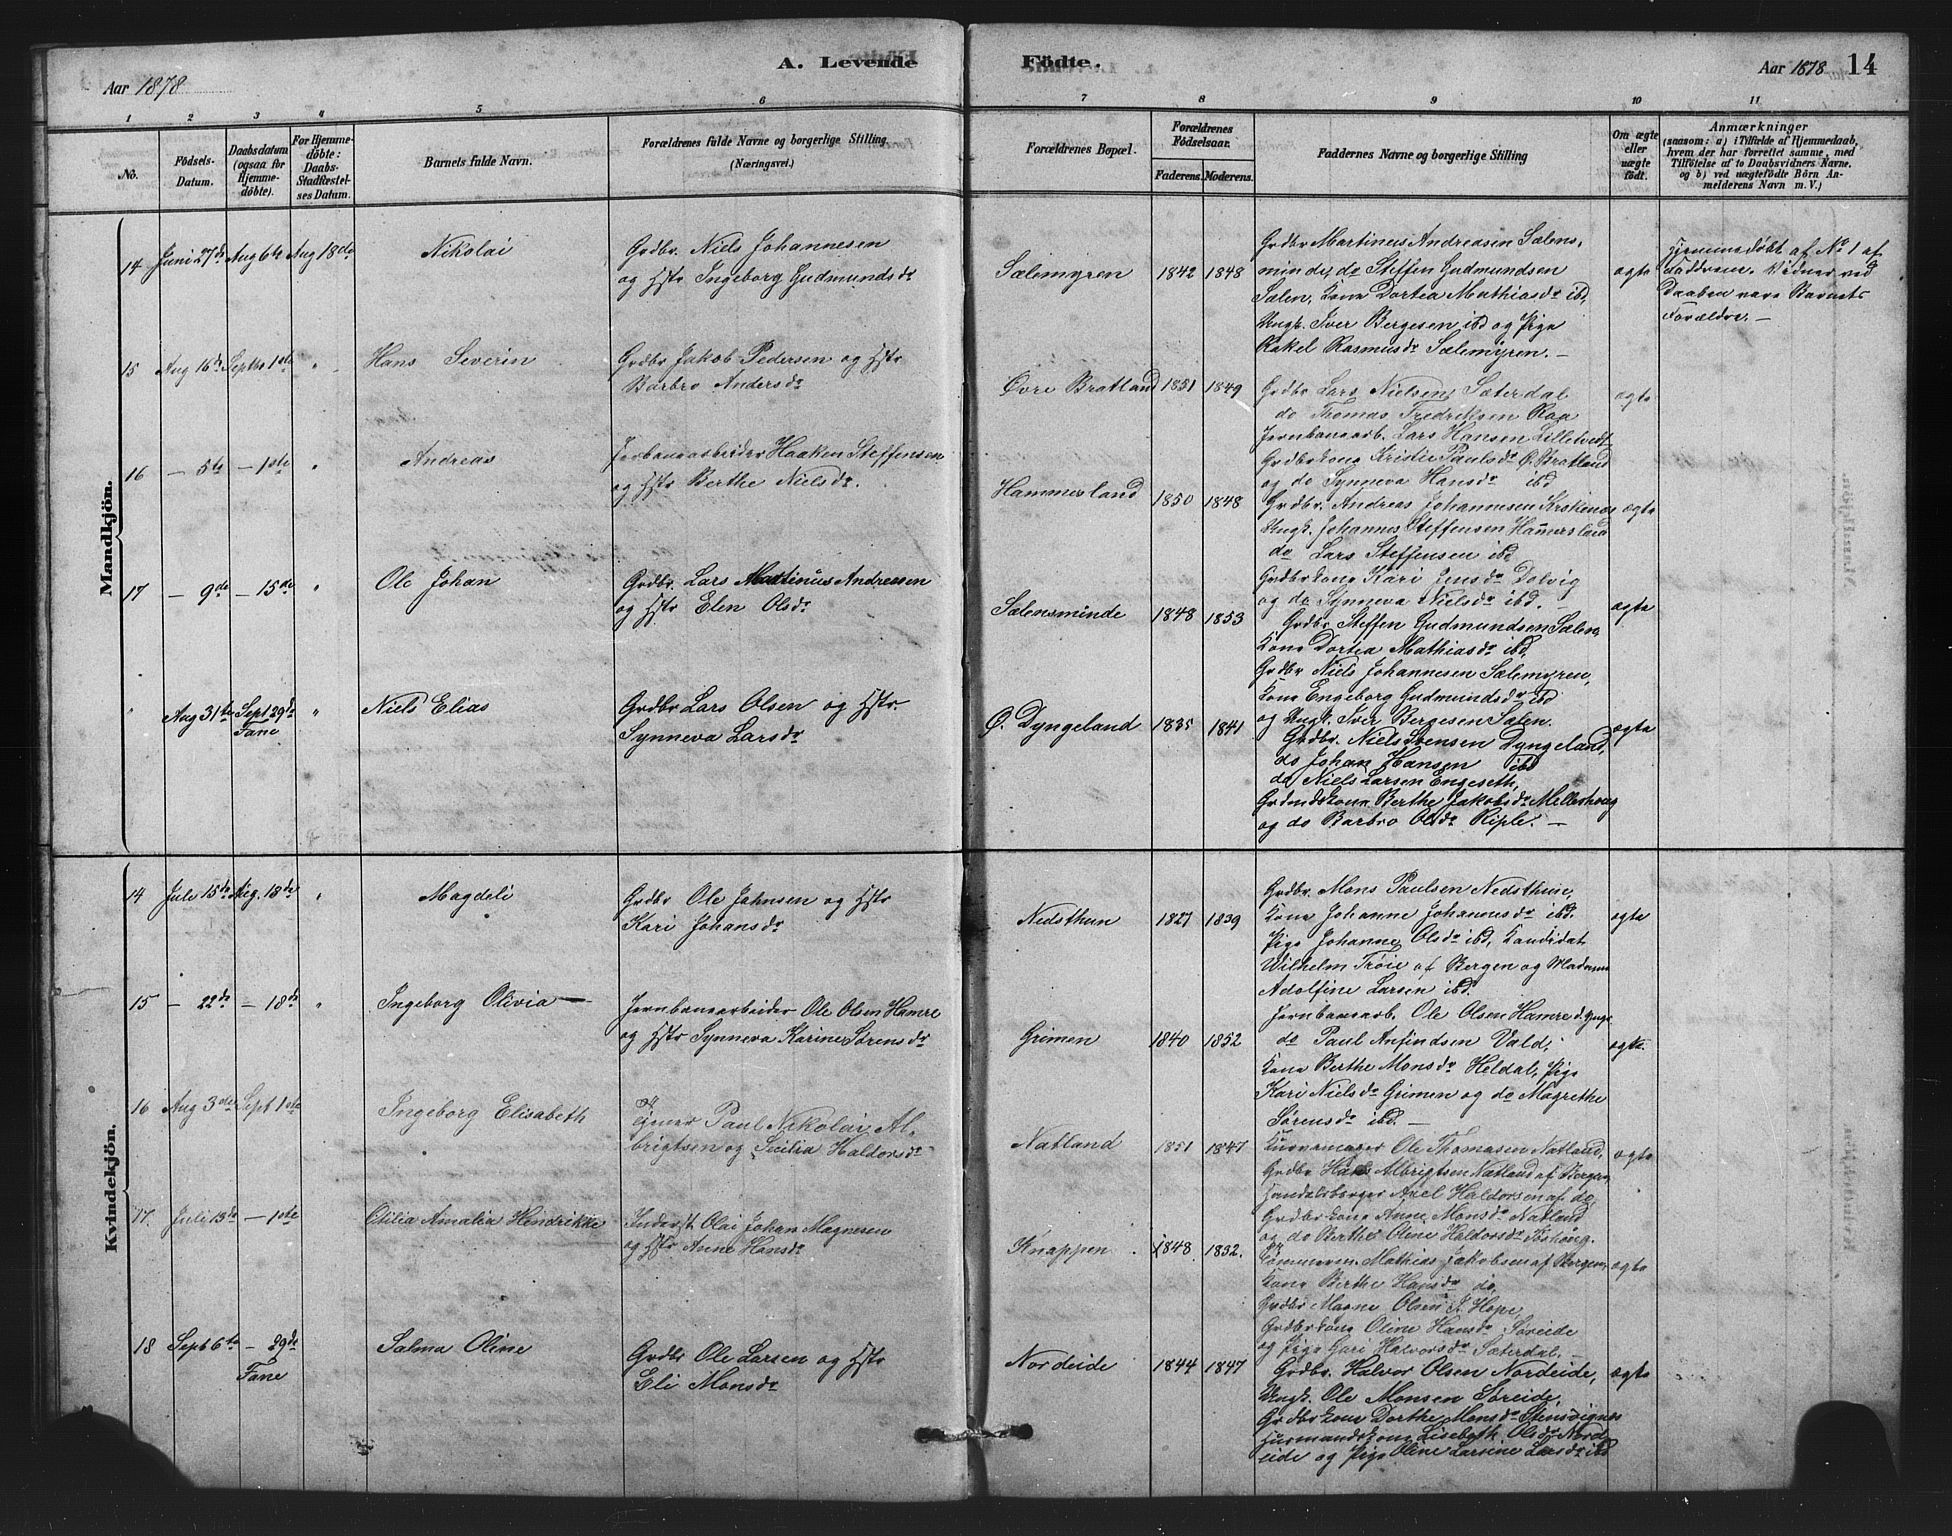 A. Levende Födte.
Aar 1878
Aar 1878 14
1 2 3 4 5 6 7 8 9 10 11
No.
Födsels-Datum.
Daabsdatum (ogsaa for Hjemme-döbte).
For Hjemme-döbte: Daabs-Stadfæstel-ses Datum.
Barnets fulde Navn.
Forældrenes fulde Navne og borgerlige Stilling, (Næringsvei.)
Forældrenes Bopæl.
Forældrenes Födselsaar.
Faderens. Moderens.
Faddernes Navne og borgerlige Stilling
Om ægte eller uægte födt.
Anmærkninger
(saasom: a) i Tilfælde af Hjemmedaab, hvem der har forrettet samme, med Tilföielse af to Daabsvidners Navne. og b) ved uægtefödte Börn An-melderens Navn m. V.)
Mandkjön.
14 Juni 27de Aug 6te Aug 18de Nikolai
Grdbr. Niels Johannesen
og Hstr Ingeborg Gudmundsdr
Sælemyren 1842 1848
Grdbr Martinus Andreasen Sælens,
minde, do Steffen Gudmundsen
Sælen, Kone Dortea Mathiasdr ibd,
Ungk. Iver Bergesen ibd og Pige
Rakel Rasmusdr Sælemyren. —
ægte
Hjemmedøbt af No 1 af
Faddrene. Vidner ved
Daaben vare Barnets
Forældre. —
15 Aug 16de Septbr 1ste " Hans Severin
Grdbr Jakob Pedersen og Hstr
Barbro Andersdr
Øvre Bratland 1851 1849
Grdbr Lars Nielsen Sæterdal
do Thomas Fredriksen Raa
Jernbanearb. Lars Hansen Lilletvedt
Grdbrkone Kristie Paulsdr Ø. Bratland
og do Synneva Hansdr ibd
ægte
16 — 5te — 1ste " Andreas
Jerbanearbeider Haaken Steffensen
og Hstr Berthe Nielsdr.
Hammersland 1850 1848
Grdbr. Andreas Johannesen
Ungk. Johannes Steffensen Hamersland
do Lars Steffensen ibd
Grdbrkone Kari Jensdr Dolvig
og do Synneva Nielsdr ibd. —
ægte
17 — 9de — 15de " Ole Johan
Grdbr Lars Martinus Andresen
og Hstr Elen Olsdr
Sælensminde 1848 1853
Grdbr Steffen Gudmundsen Sælen,
Kone Dortea Mathiasdr ibd,
Grdbr Niels Johannesen Sælemyren,
Kone Engeborg Gudmundsdr ibd
og Ungk. Iver Bergesen Sælen.
ægte
" Aug 31te Sept 29de " Niels Elias
Fane
Grdbr Lars Olsen og Hstr
Synneva Larsdr
Ø. Dyngeland 1835 1841
Grdbr. Niels Svensen Dyngeland,
do Johan Hansen ibd
do Niels Larsen Engesett,
Berthe Jakobsdr
og do Barbro Olsdr Riple. —
ægte
Kvindekjön.
14 Juli 15de Aug. 18de " Magdeli
Grdbr Ole Johnsen og Hstr
Kari Johansdr
Nedsthun 1827 1839
Grdbr. Mons Paulsen Nedsthun,
Kone Johanne Johannesdr ibd.
Pige Johanne Olsdr ibd, Kandidat
Wilhelm Trøie af Bergen og Madame
Adolfine Larsen ibd.
ægte
15 — 22de — 18de " Ingeborg Olivia —
Jernbanearbeider Ole Olsen Hamre
og Hstr Synneva Karine Sørensdr
Grimen 1840 1852
Jernbanearb. Ole Olsen Hamre d. Ynge
do Paul Anfindsen Vald,
Kone Berthe Monsdr Heldal, Pige
Kari Nielsdr Grimen og do Magrethe
Sørensdr ibd. —
ægte.
16 Aug 3de Sept 1ste Ingeborg Elisabeth
Paul Nikolai Al-
brigtsen og Sicilia Haldorsdr
Natland 1851 1847
Kurvemager Ole Thomasen Natland,
Grdbr Hans Albrigtsen Natland af Bergen
Handelsborger Axel Haldorsen af do,
Grdbrkone Anne Monsdr Natland
og do Berthe Oline Haldorsdr
ægte
17. Juli 13de — 1ste Otilia Amalia Hendrikke
Inderst Olai Johan Magnesen
og Hstr Anne Hansdr
Knappen 1848 1852.
Mathias Jakobsen af Bergen,
Kone Berthe Hansdr do,
Grdbr Magne Olsen I. Hope,
Grdbrkone Oline Hansdr Søreide
og Pige Gari Halvorsdr Sæterdal. —
ægte
18 Sept 6te — 29de Salma Oline
Fane
Grdbr Ole Larsen og Hstr
Eli Monsdr
Nordeide 1844 1847
Grdbr. Halvor Olsen Nordeide,
Ungk. Ole Monsen Søreide,
Grdbrkone Dorthe Monsdr
Husmandskone Lisebeth Olsdr Nord
eide og Pige Oline Larsine Larsdr ibd
ægte